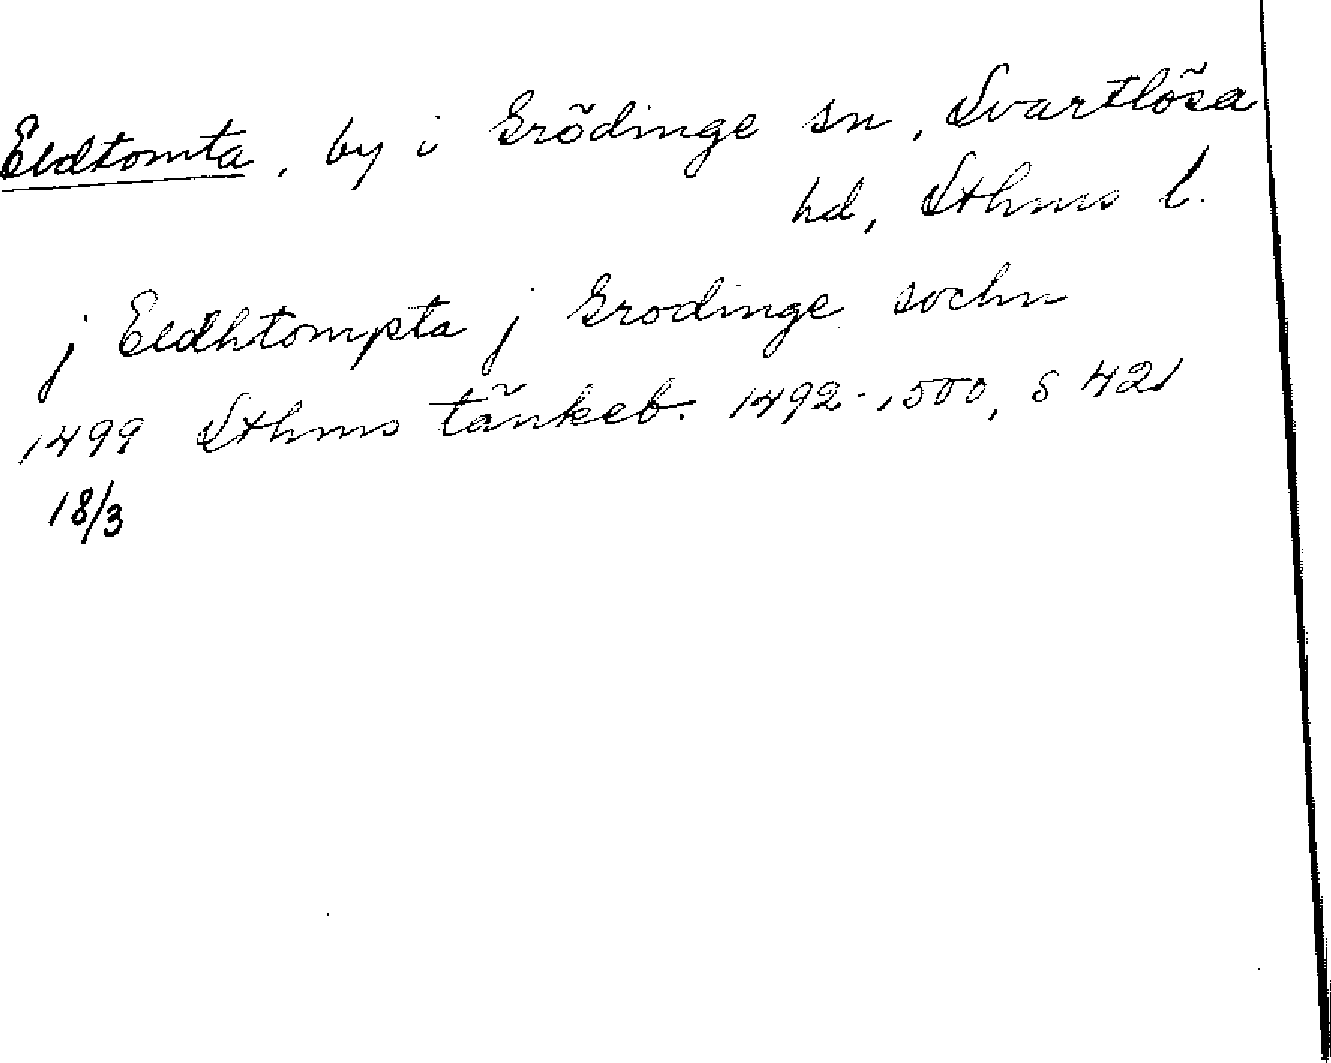 Eldtomta, by i Grödinge sn, Svartlösa
hd, Sthms l.
j Eldhtompta j Grodinge sochn
1499 Sthms tänkeb. 1492-1500, s 421
18/3